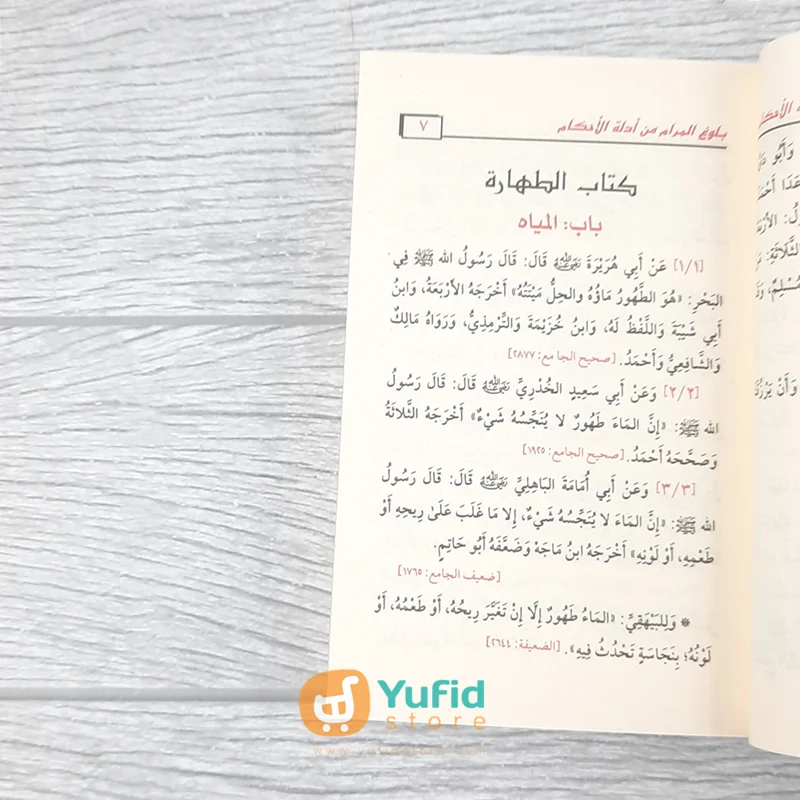 بلوغ المرام من أدلة الأحكام
٧
كتاب الطهارة
باب: المياه
[١/١] عَنْ أَبِي هُرَيْرَةَ رَضِيَ اللَّهُ عَنْهُ قَالَ: قَالَ رَسُولُ الله ﷺ فِي
البَحْرِ: «هُوَ الطَّهُورُ مَاؤُهُ والحِلُّ مَيْتَتُهُ» أَخْرَجَهُ الأَرْبَعَةُ، وَابنُ
أَبِي شَيْبَةَ وَاللَّفْظُ لَهُ، وَابنُ خُزَيْمَةَ وَالتِّرْمِذِيُّ، وَرَوَاهُ مَالِكٌ
وَالشَّافِعِيُّ وَأَحْمَدُ. [صحيح الجامع: ٢٨٧٧]
[٢/٢] وَعَنْ أَبِي سَعِيدٍ الخُدْرِيِّ رَضِيَ اللَّهُ عَنْهُ قَالَ: قَالَ رَسُولُ
الله ﷺ: «إِنَّ المَاءَ طَهُورٌ لا يُنَجِّسُهُ شَيْءٌ» أَخْرَجَهُ الثَّلاثَةُ
وَصَحَّحَهُ أَحْمَدُ. [صحيح الجامع: ١٩٢٥]
[٣/٣] وَعَنْ أَبِي أُمَامَةَ البَاهِلِيِّ رَضِيَ اللَّهُ عَنْهُ قَالَ: قَالَ رَسُولُ
الله ﷺ: «إِنَّ المَاءَ لا يُنَجِّسُهُ شَيْءٌ، إِلا مَا غَلَبَ عَلَى رِيحِهِ أَوْ
طَعْمِهِ، أَوْ لَوْنِهِ» أَخْرَجَهُ ابنُ مَاجَهْ وَضَعَّفَهُ أَبُو حَاتِمٍ.
[ضعيف الجامع: ١٧٦٥]
* وَلِلبَيْهَقِيِّ: «المَاءُ طَهُورٌ إِلَّا إِنْ تَغَيَّرَ رِيحُهُ، أَوْ طَعْمُهُ، أَوْ
لَوْنُهُ؛ بِنَجَاسَةٍ تَحْدُثُ فِيهِ». [الضعيفة: ٢٦٤٤]
Yufid
store